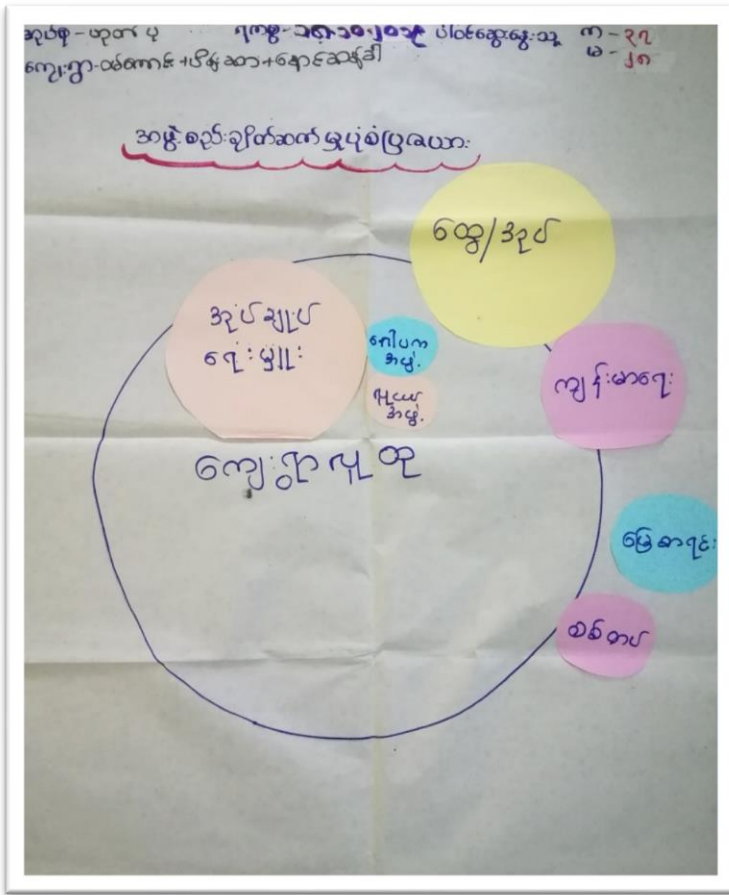 အုပ်စု - ဟုတ်ပု ရက်စွဲ - ၁၈.၁၁.၂၀၁၉ ပါဝင်ဆွေးနွေးသူ က - ၃၇
မ - ၂၈
ကျေးရွာ -
အဖွဲ့စည်းချိတ်ဆက်မှုပုံစံပြဇယား
ထွေ/အုပ်
အုပ်ချုပ်
ရေးမှူး
ဂေါပက
အဖွဲ့
လူငယ်
အဖွဲ့
ကျန်းမာရေး
ကျေးရွာလူထု
မြေစာရင်း
စစ်တပ်